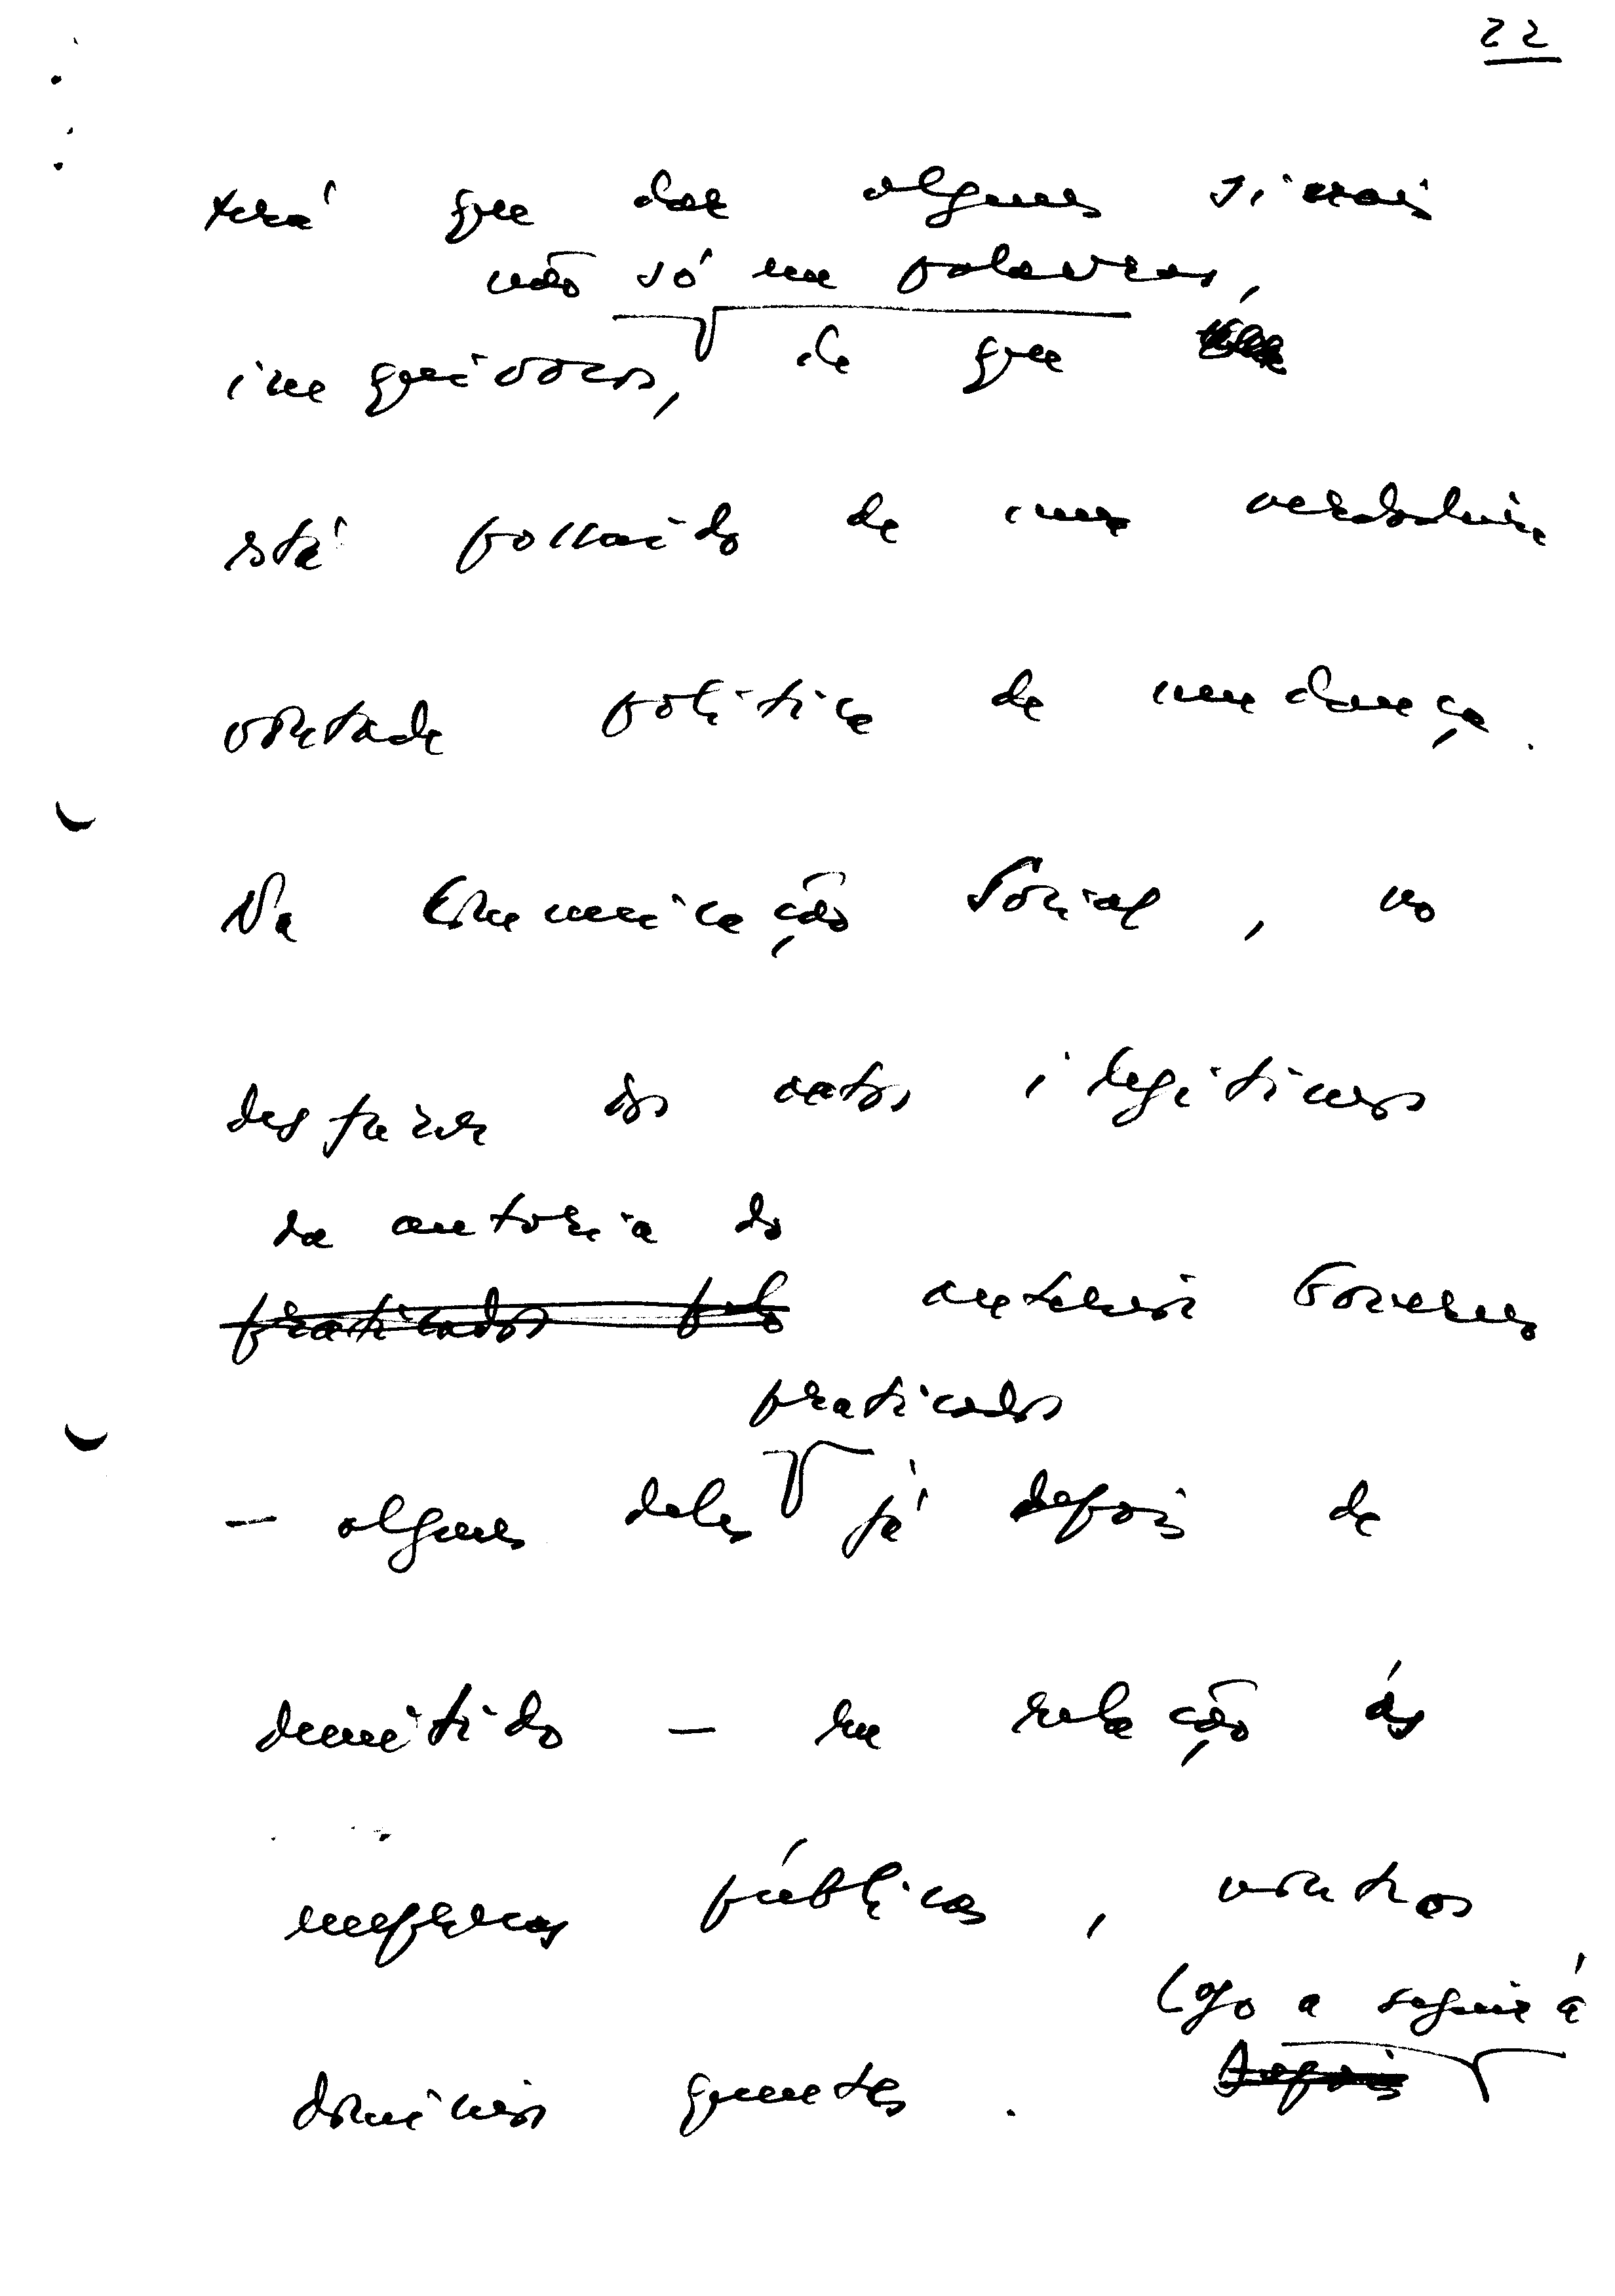 22
terá que dar alguns sinais
não só em palavras,
inequívocos, de que
está possuído de uma verdadeira
vontade política de mudança.
Na Comunicação Social, no
desfazer dos actos ilegítimos
da autoria do
praticados pelo anterior Governo
praticados
- alguns deles já depois de
demitido - em relação às
empresas públicas, noutros
logo a seguir à
domínios quentes. Depois